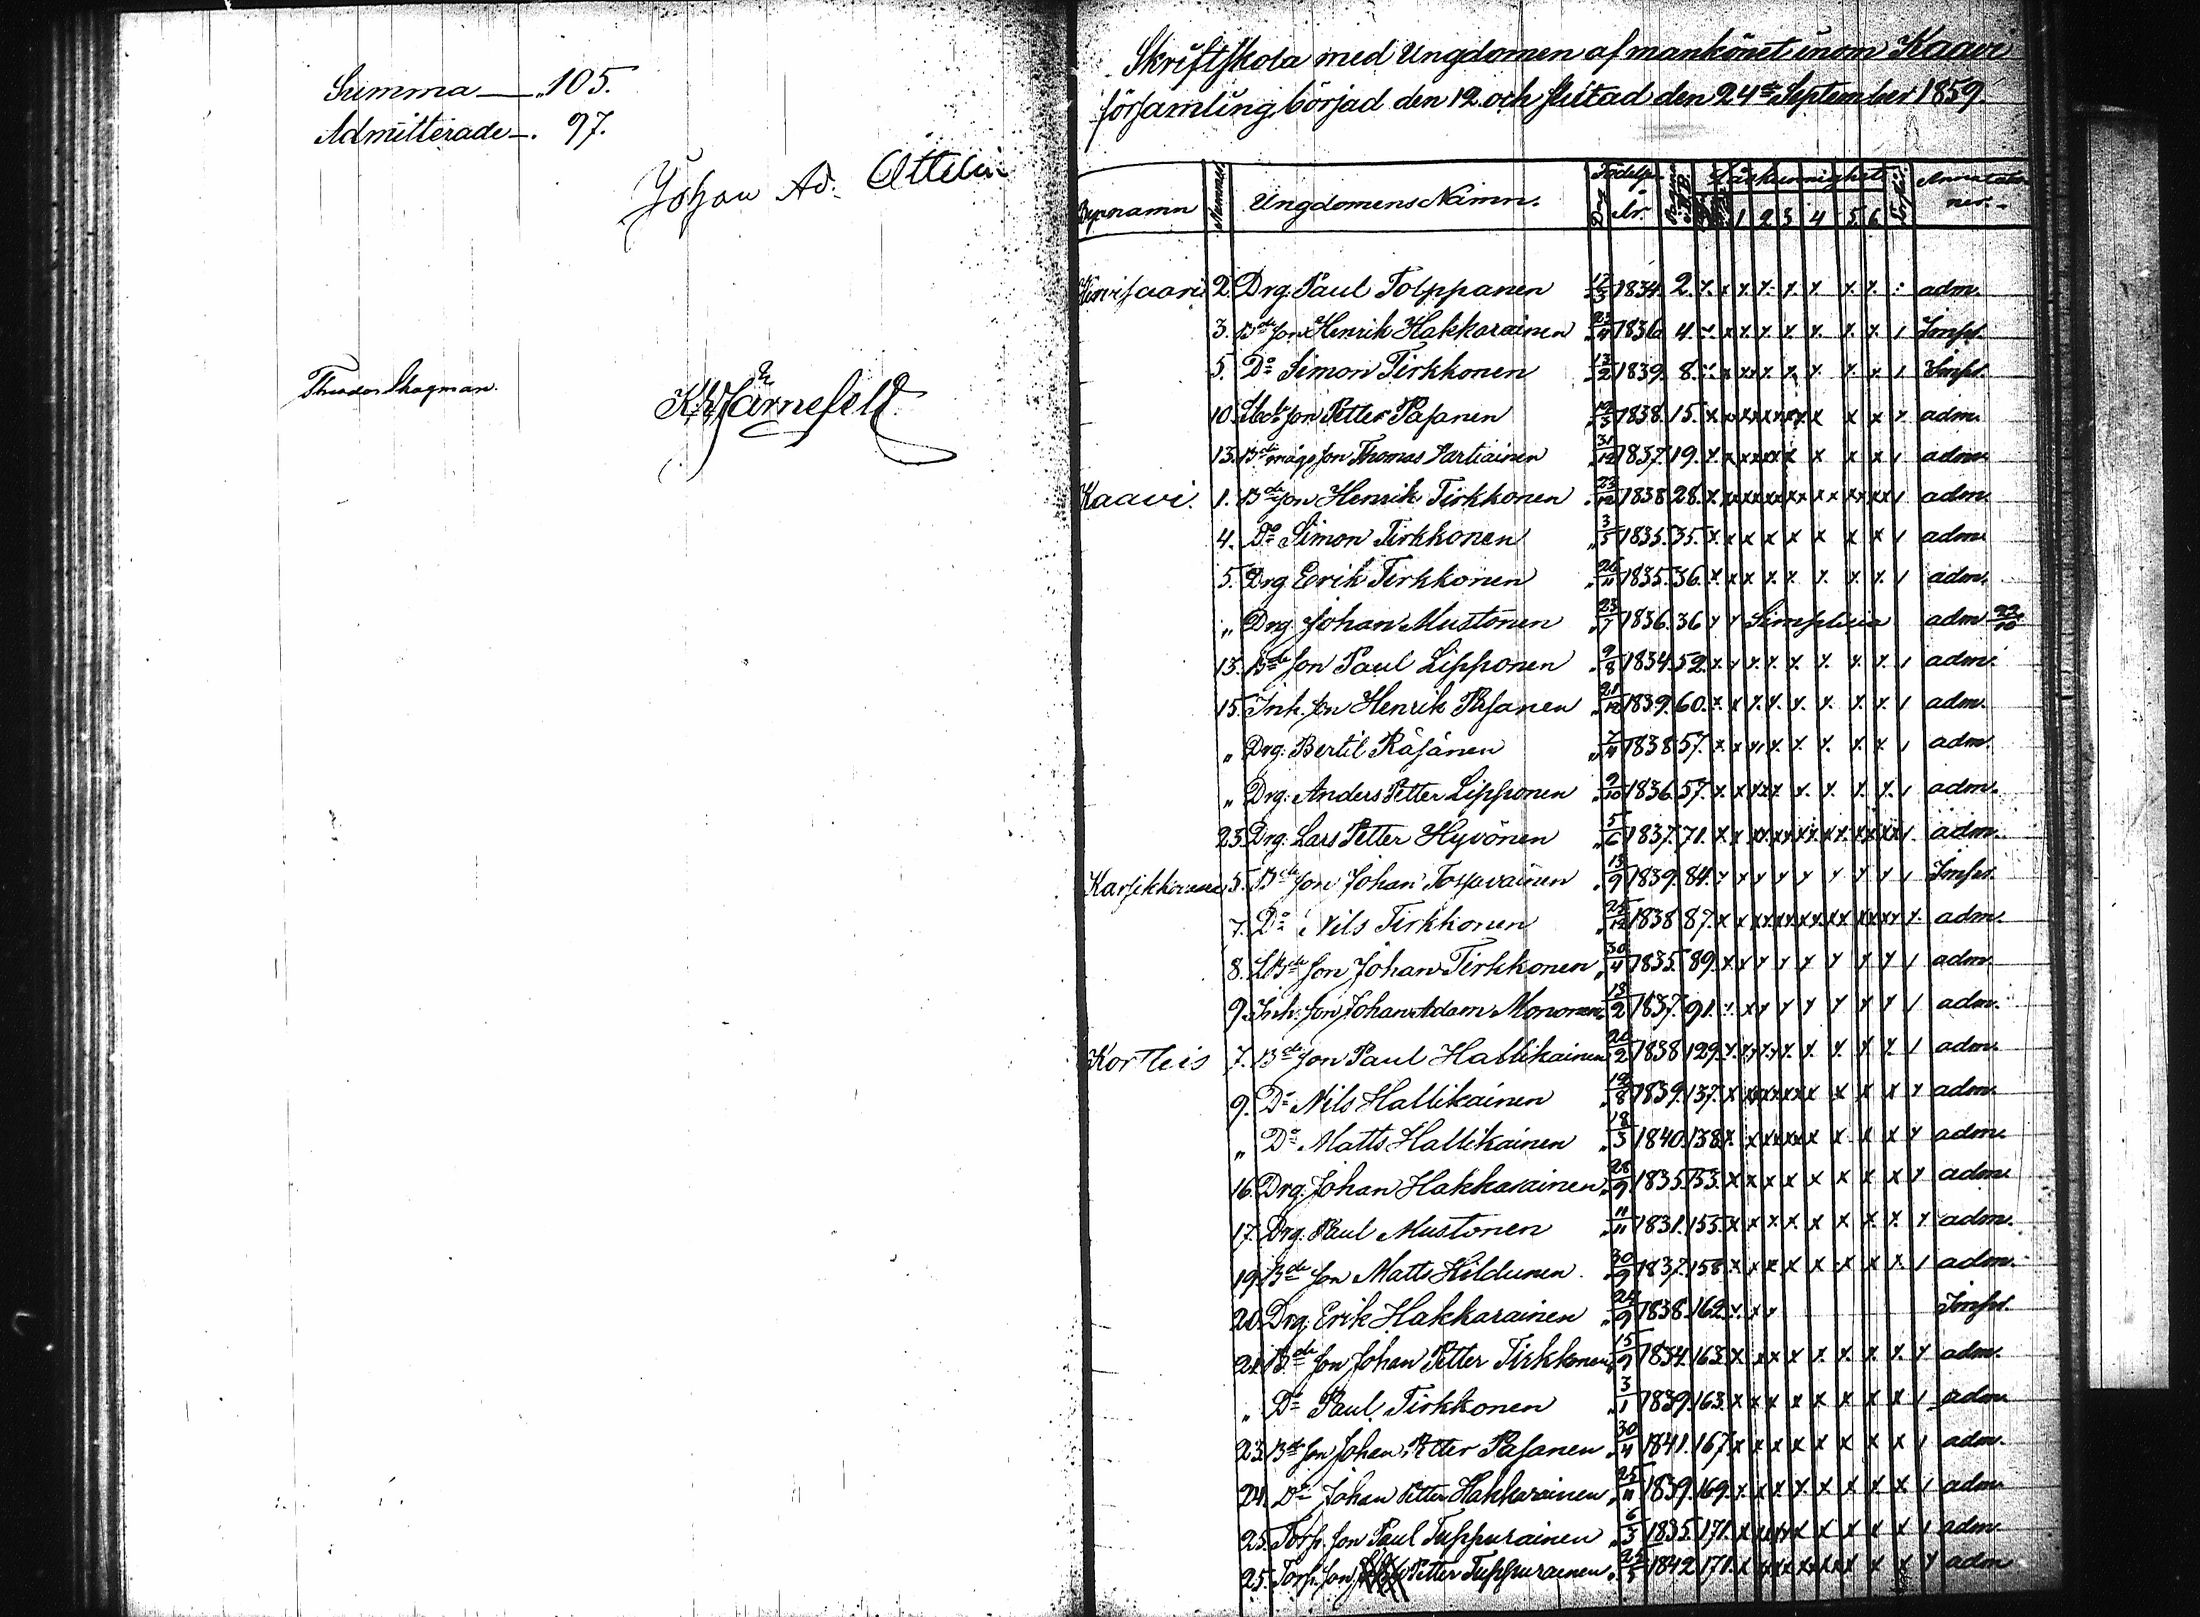 Summa — 105.
Admitterade —. 97.
Johan Ad. Ottelin
Theodor Skogman.
K. W. Järnefelt
Skriftskola med Ungdomen af mankönet inom Kaavi
församling, börjad den 12 och slutad den 24de September 1859.
Bynamn Nummer Ungdomens Namn. Födelse Dag År. Pagina Läskunnighet 1 2 3 4 5 6 Annotationer.
2. Drg: Paul Tolppanen 12/3 1834. 2. adm.
3. Bde son Henrik Hakkarainen 1836 4. Impl.
5. Do Simon Tirkkonen 13/2 1839. 8. Impl.
10. son Petter Pasanen 1838. 15. adm.
13. Bde mågs son Thomas Partiainen 31/12 1837. 19. adm.
Kaavi. 1. Bde son Henrik Tirkkonen 23/12 1838 28. adm.
4. Do Simon Tirkkonen 3/5 1835. 35. adm.
5. Drg Eerik Tirkkonen 26/11 1835. 36. adm.
" Drg. Johan Mustonen 23/7 1836. 36 Simplicia adm 22/10
13. Bde son Paul Lipponen 9/8 1834. 52. adm.
15. Inh. son Henrik Pasanen 21/12 1839. 60. adm.
" Drg. Bertil Räsänen 1838 57. adm.
" Drg: Anders Petter Lipponen 9/10 1836. 57. adm.
23. Drg: Lars Petter Hyvönen 5/6 1837. 71. adm.
5. Bde son Johan Toivainen 13/9 1839. 84. Impl.
7. Do Nils Tirkkonen 25/12 1838 87. adm.
8. LBde son Johan Tirkkonen 30/4 1835. 89. adm.
9. Inh. son Johan Adam Mononen 13/2 1837. 91. adm.
Korteis 7. Bde son Paul Hallikainen 26/2 1838 129. adm.
9. Do Nils Hallikainen 19/8 1839. 137. adm.
" Do Matts Hallikainen 18/3 1840. 138 adm.
16. Drg. Johan Hakkarainen 28/9 1835. 153. adm.
17. Drg. Paul Mustonen 11/11 1831. 153. adm.
19. Bde son Matts Hildunen 30/9 1837. 158 adm.
20. Drg. Erik Hakkarainen 1838. 162. Impl.
21. Bde son Johan Petter Tirkkonen 15/9 1834. 163. adm.
" Do Paul Tirkkonen 3/1 1839. 163. adm
23. Bde son Johan Petter Pasanen 30/4 1841. 167 adm.
24. Do Johan Petter Hakkarainen 25/11 1839. 169. adm
25. Torp. son Paul Tuppurainen 6/3 1835. 171. adm.
25. Torp. son Petter Tuppurainen 25/5 1842 171. adm